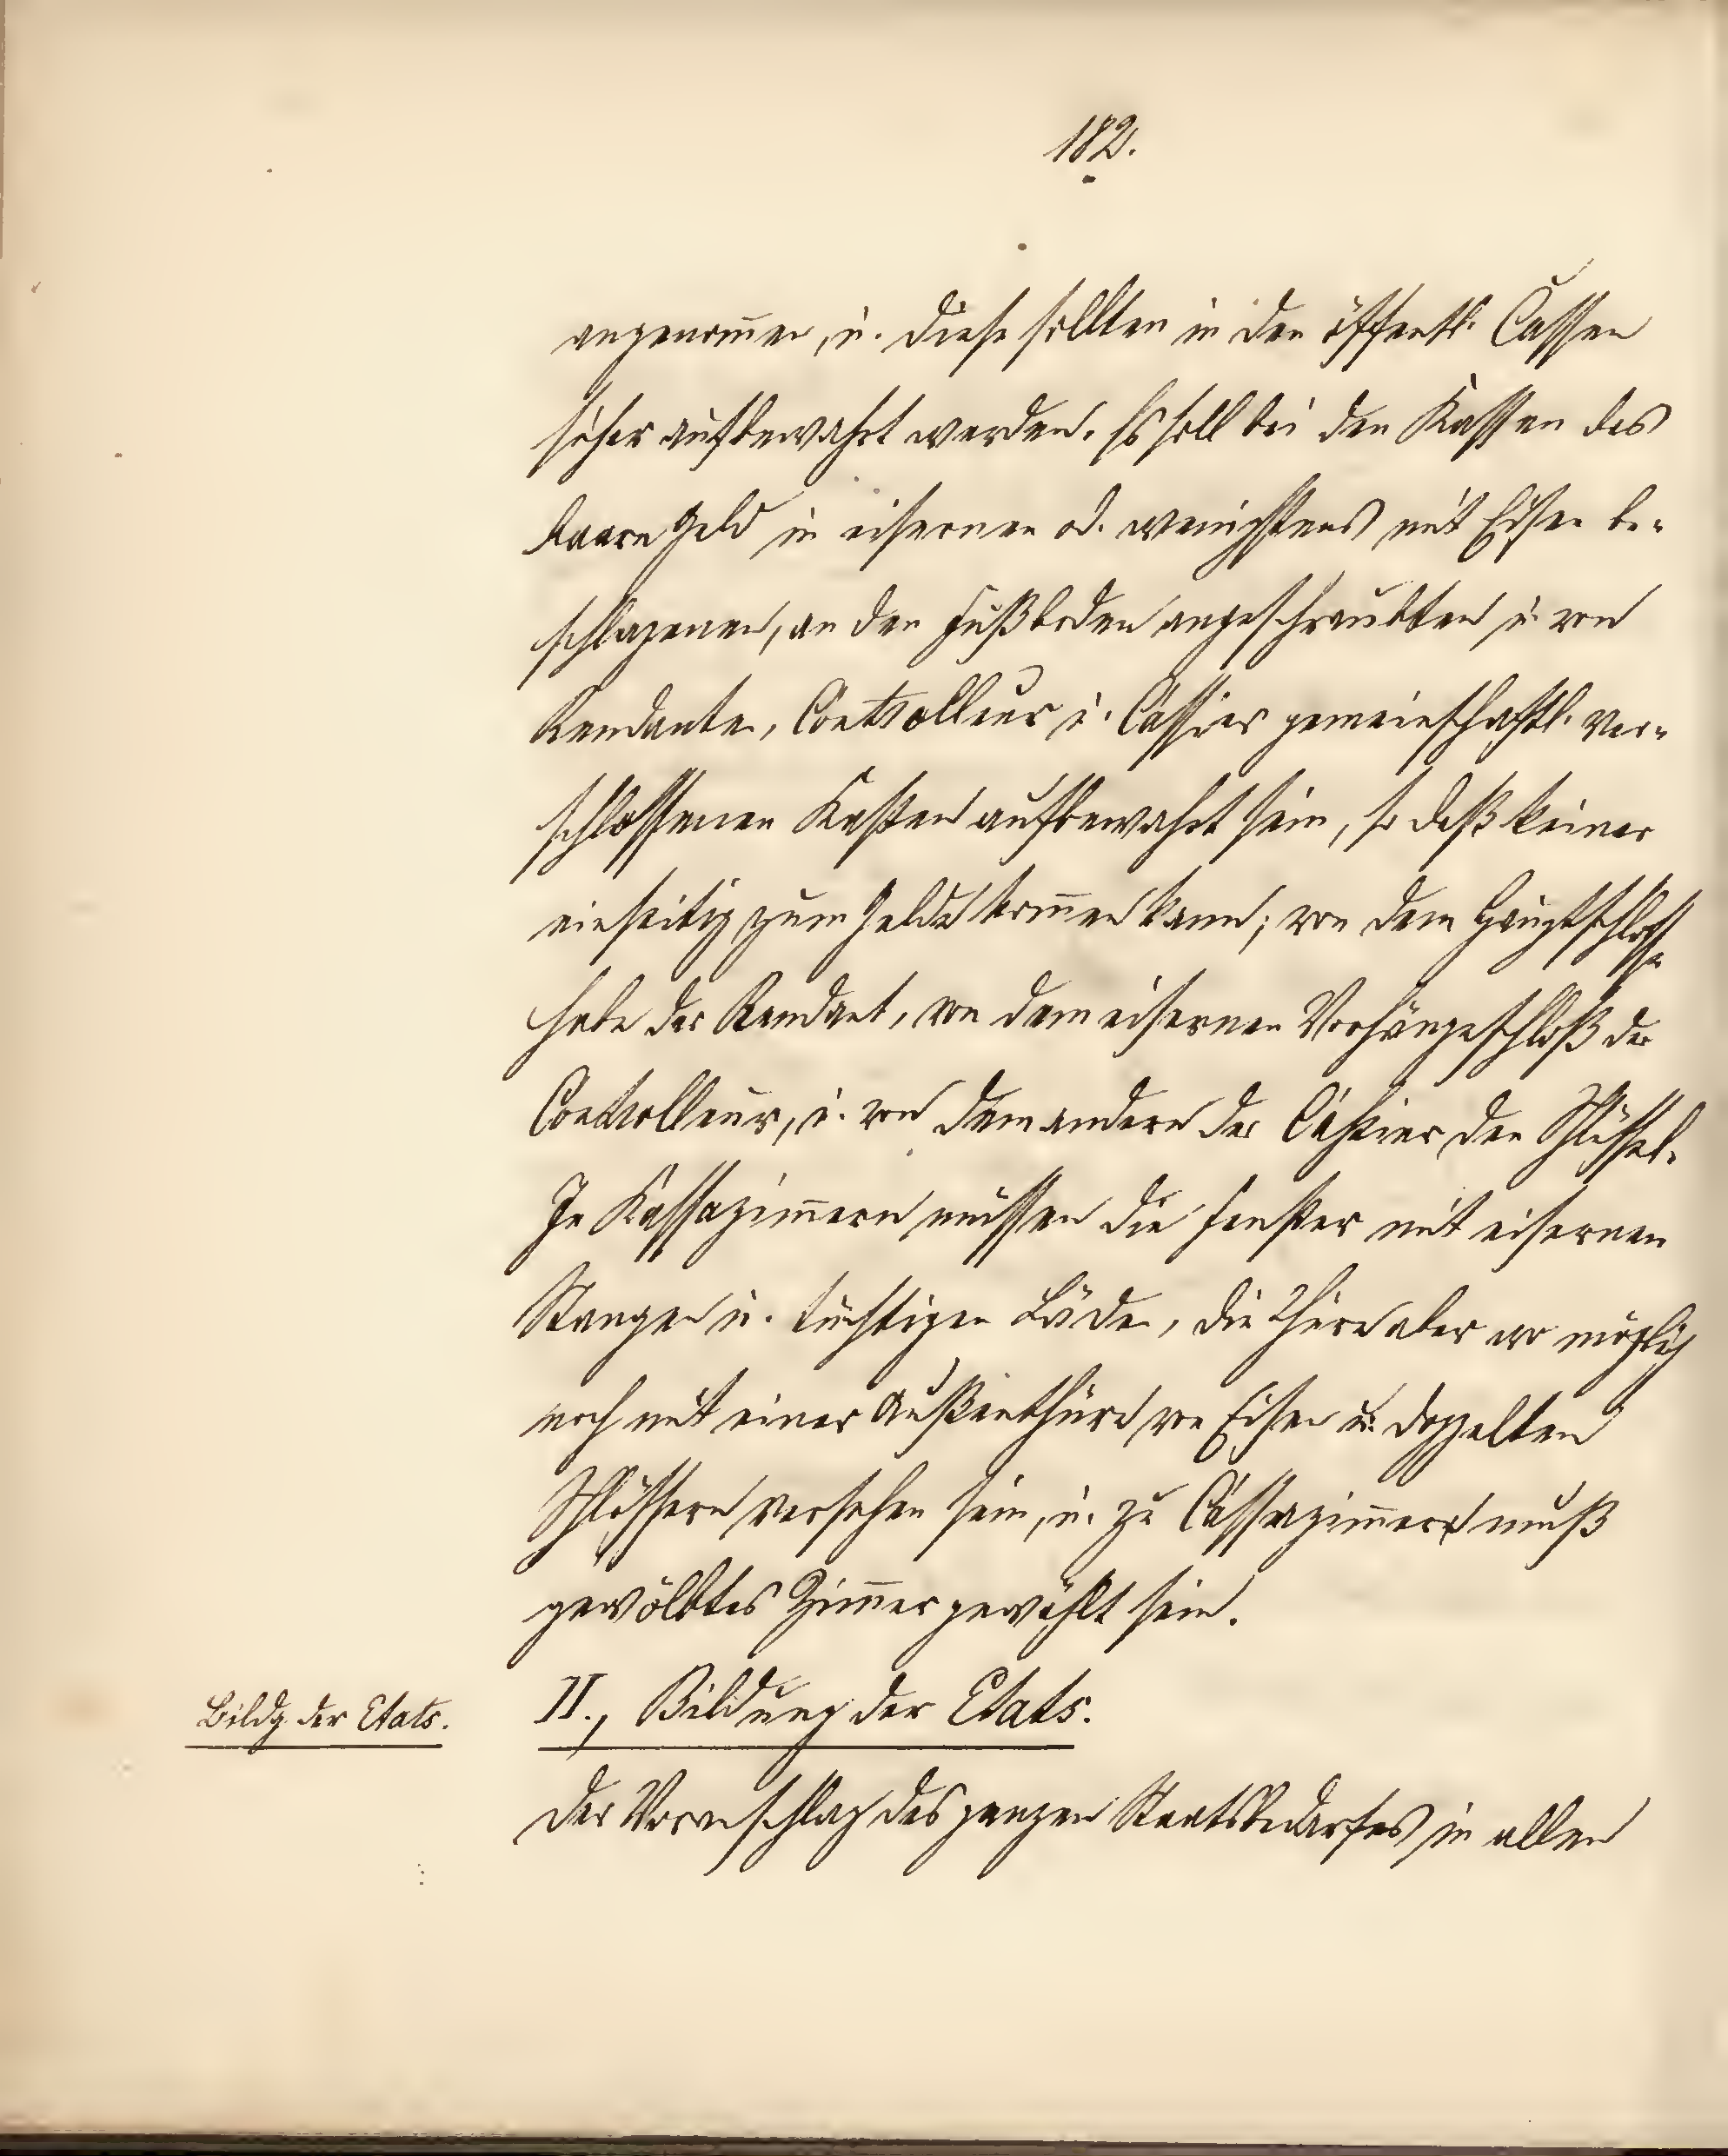 182.
angenom̅en, u. diese sollten in den öffentl. Cassen
sicher aufbewahrt werden. Es soll bei den Kassen das
baare Geld in eisernen od. wenigstens mit Eisen be-
schlagenen, an den Fußboden angeschraubten u. von
Rendanten, Controlleur u. Cassier gemeinschaftl. ver-
schlossenen Kasten aufbewahrt sein, so daß keiner
einseitig zum Gelde kom̅en kann; von dem Hauptschlosse
habe der Rendant, von dem eisernen Vorhängeschloß der
Controlleur, u. von dem andern der Cassier den Schlüssel.
In Kassazim̅ern müssen die Fenster mit eisernen
Stangen u. tüchtigen Läden, die Thüre aber wo möglich
noch mit einer Außenthüre von Eisen u. doppelten
Schlössern versehen sein, u. zu Cassazim̅ern muß
gewölbtes Zim̅er gewählt sein.
Bildg der Etats.
II., Bildung der Etats.
Der Voranschlag des ganzen Staatsbedarfes in allen